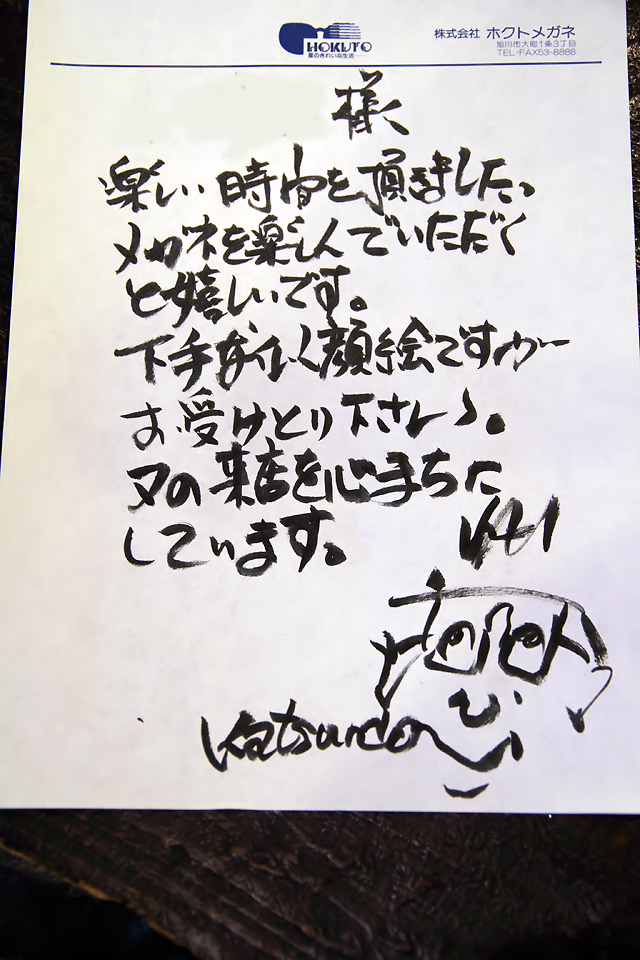 HOKUTO
星のきれいな生活
株式会社 ホクトメガネ
旭川市大町1条3丁目
TEL・FAX53-8888
様
楽しい時間を頂きました。
メガネを楽しんでいただく
と嬉しいです。
下手な似顔絵ですが
お受けとり下さい。
又の来店を心まちに
しています。